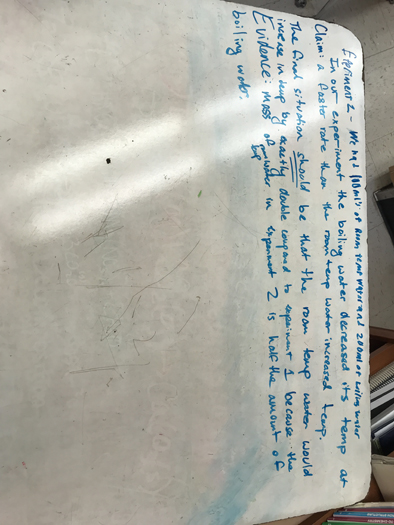 Experiment 2 - We had 100ml's of Room temp water and 200ml of boiling water
In our experiment the boiling water decreased its temp at
Claim: a faster rate than the room temp water increased temp.
The final situation should be that the room temp water would
increase in temp by exactly double compared to experiment 1 because the
Evidence: mass of water in experiment 2 is half the amount of
boiling water.